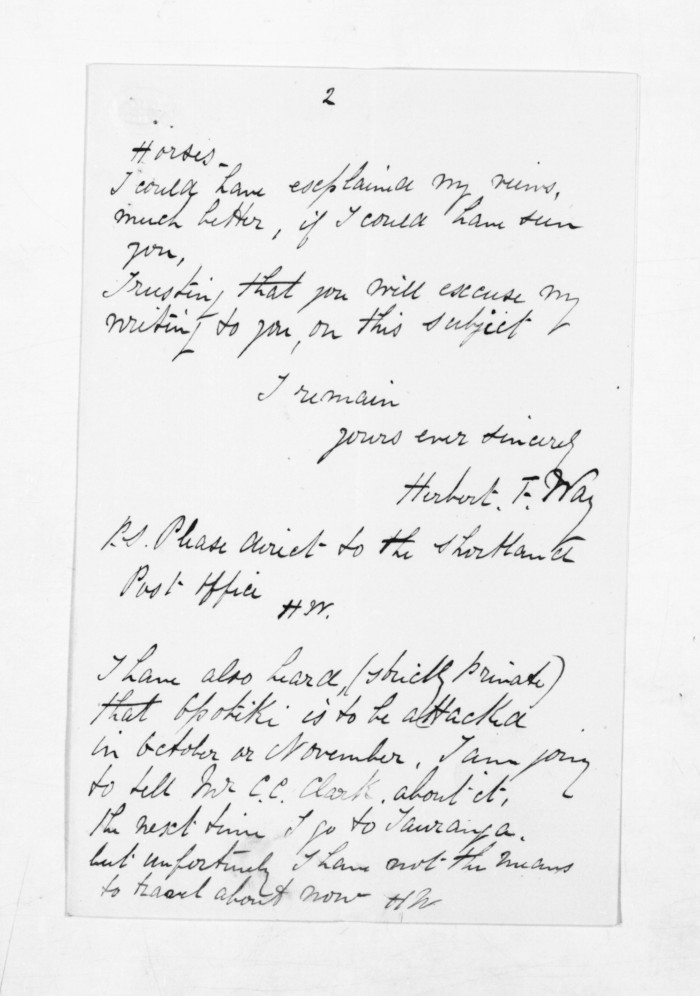 2
Horses_
I could have esceplained my views,
much better, if I could have seen
you,
Trusting that you will escuse my
writing to you, on this subject
I remain
yours ever sincerely
Herbert. F. Way
P.S. Please direct to the Shortland
Post Office
HW.
I have also heard, (strictly private)
that Opotiki is to be attacked
in October or November, I am going
to tell Mr C.C. Clark. about it,
the next time I go to Tauranga.
but unfortunely I have not the means
to travel about now HW